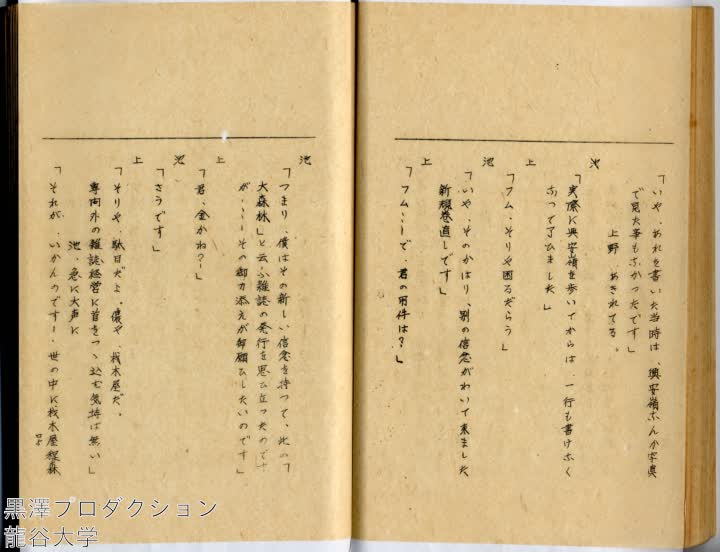 「いや、あれを書いた当時は、興安嶺なんか写真
で見た事もなかったです」
上野、あきれてる。
池
「実際に興安嶺を歩いてからは、一行も書けなく
なって了ひました」
上
「フム、そりや困るだらう」
池
「いや、そのかはり、別の信念がわいて来ました
新規巻直しです」
上
「フム……で、君の用件は?」
池
「つまり、僕はその新しい信念を持つて、此の「
大森林」と云ふ雑誌の発行を思ひ立つたのです
が……その御力添えが御願ひしたいのです」
上
「君、金かね?」
池
「さうです」
上
「そりや、駄目だよ、儂や、材木屋だ。
専向外の雑誌経営に首をつっ込む気持は無い」
池、急に大声に
「それが、いかんのです!、世の中に材木屋程森
黒澤プロダクション
龍谷大学